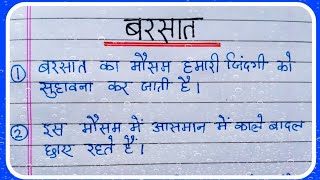 बरसात
① बरसात का मौसम हमारी जिंदगी को
सुहावना कर जाती है।
② इस मौसम में आसमान में काले बादल
छाए रहते हैं।